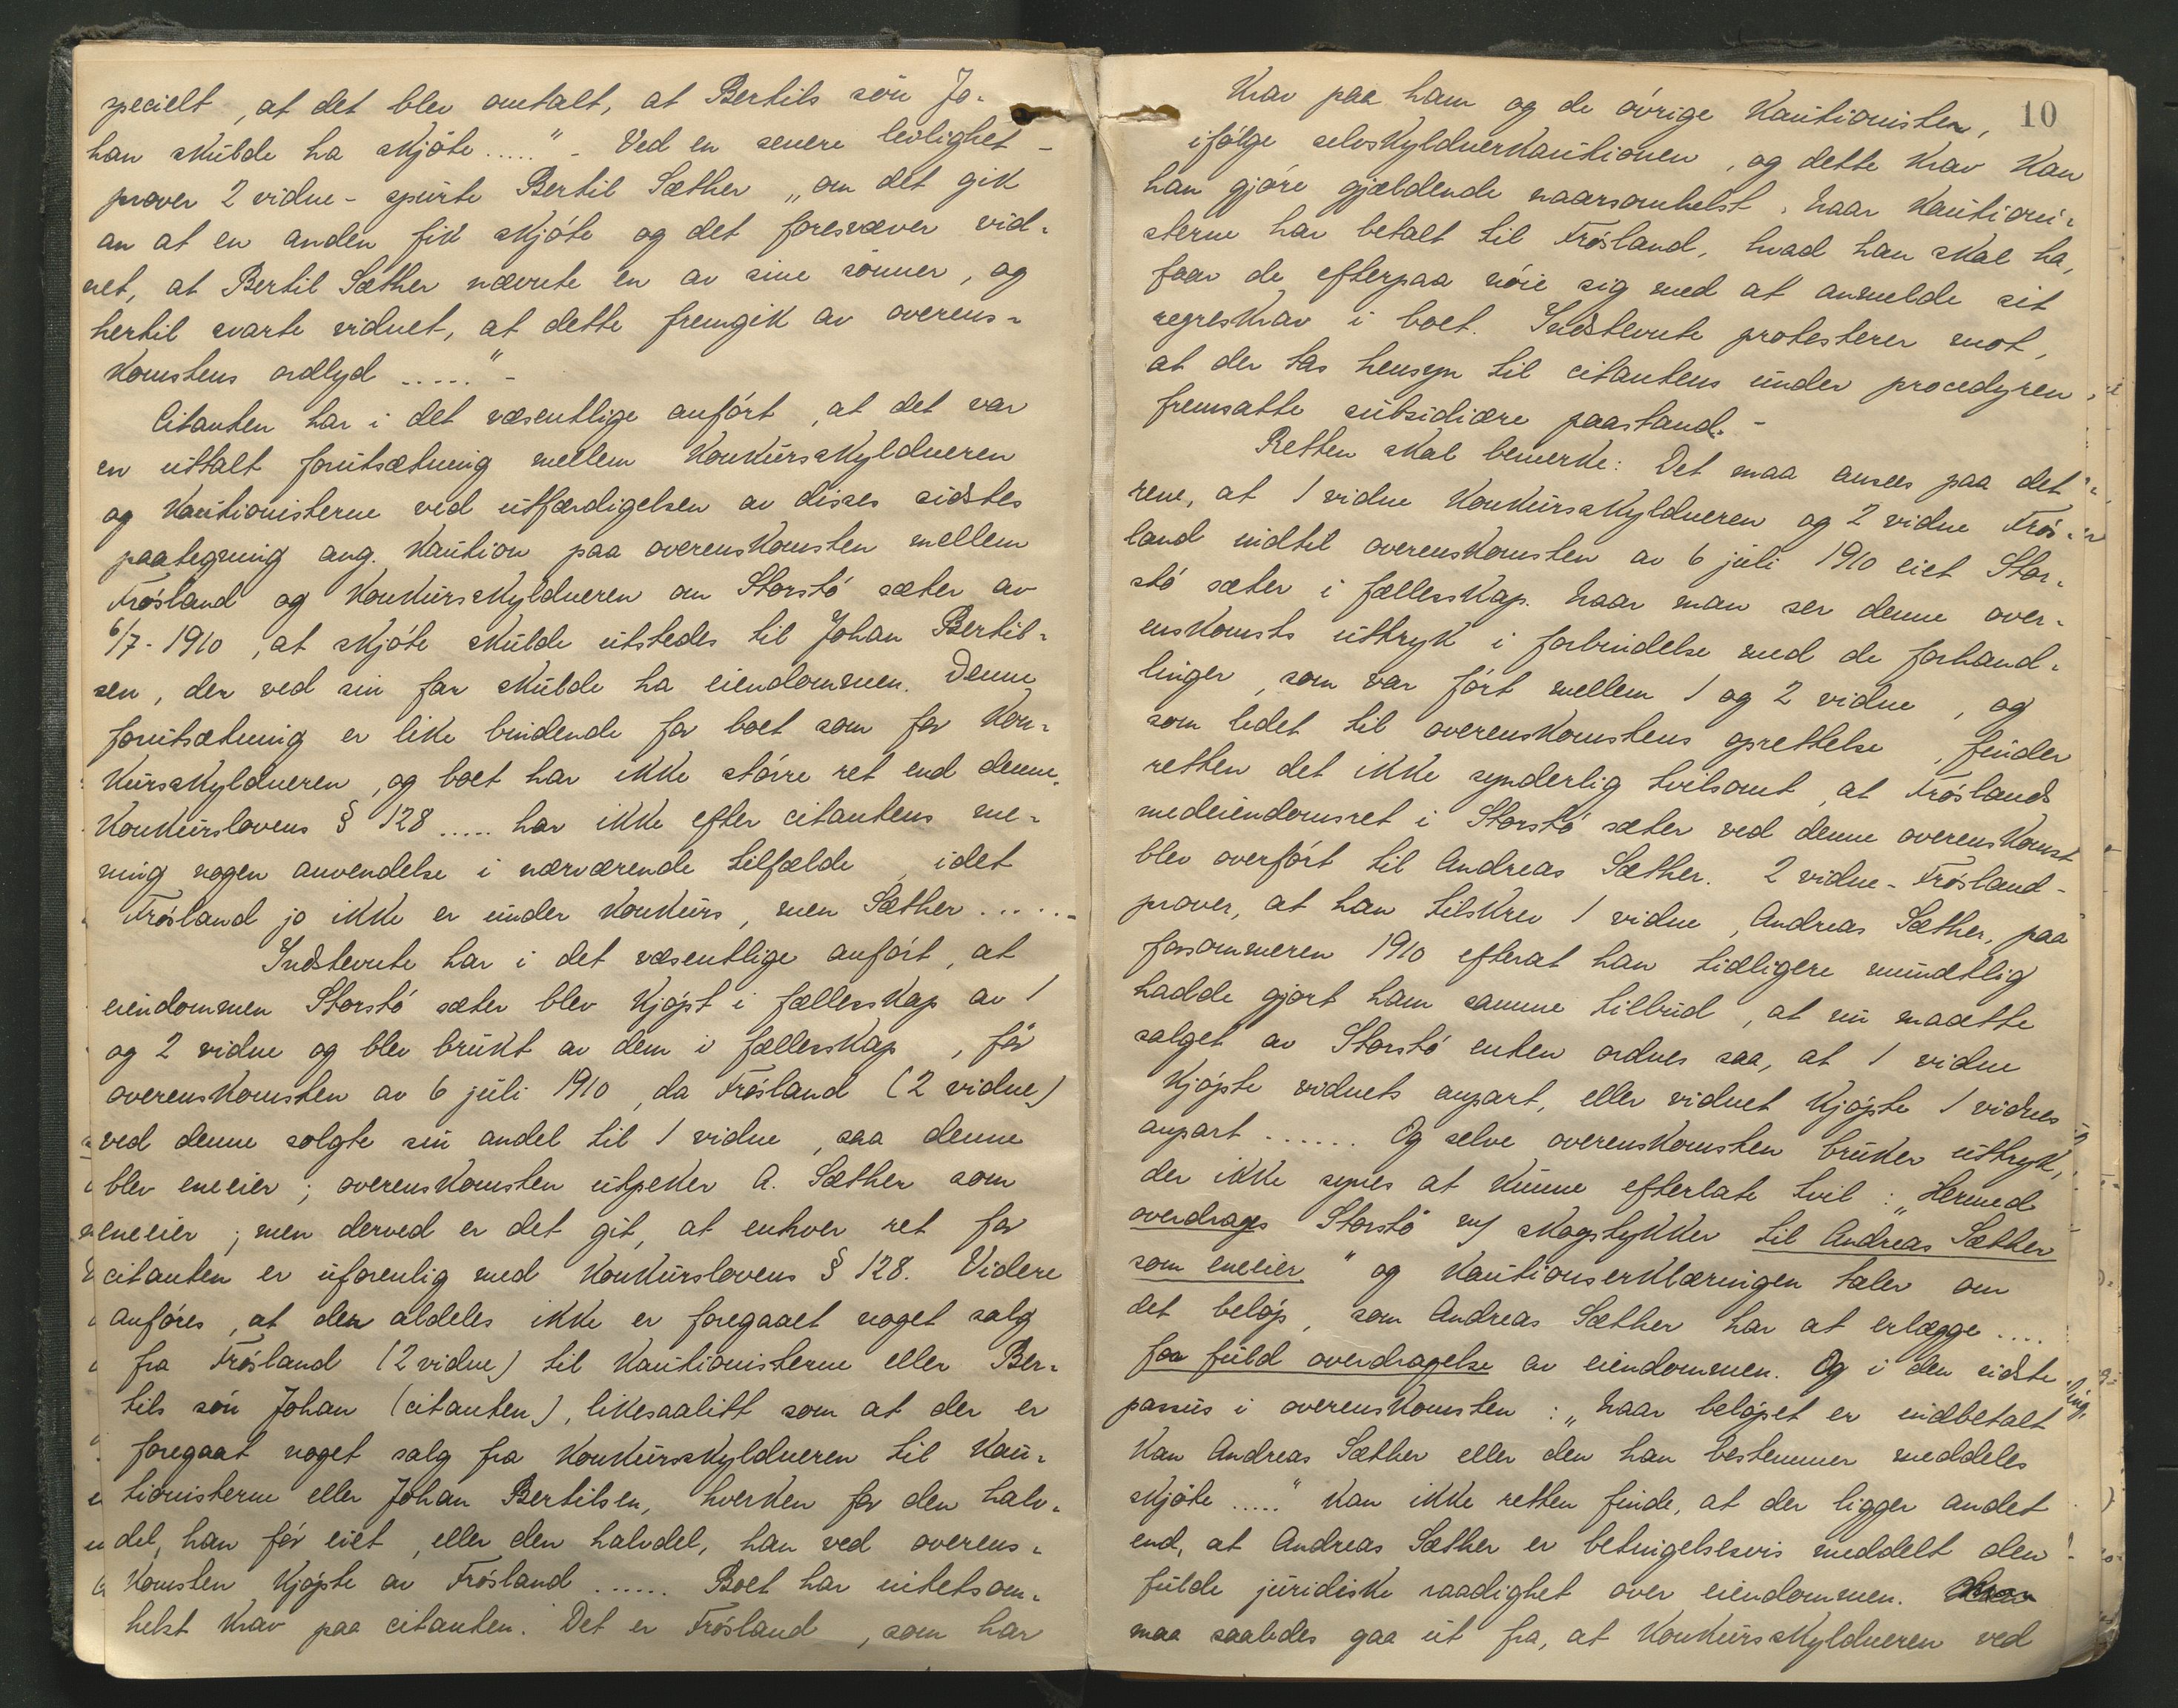 specielt, at det blev omtalt, at Bertils søn Jo-
han skulde ha skjøte ....." - Ved en senere leilighet -
prover 2 vidne - spurte Bertil Sæther „om det gik
an at en anden fik skjøte og det foresvæver vid-
net, at Bertil Sæther nævnte en av sine sønner, og
hertil svarte vidnet, at dette fremgik av overens-
komstens ordlyd ....." -
Citanten har i det væsentlige anført, at det var
en uttalt forutsætning mellem konkursskyldneren
og kautionisterne ved utfærdigelsen av disses sidstes
paategning ang. kaution paa overenskomsten mellem
Frøsland og konkursskyldneren om Storstø sæter av
6/7-1910, at skjøte skulde utstedes til Johan Bertil-
sen, der ved sin far skulde ha eiendommen. Denne
forutsætning er like bindende for boet som for kon-
kursskyldneren, og boet har ikke større ret end denne.
Konkurslovens § 128 ..... har ikke efter citantens me-
ning nogen anvendelse i nærværende tilfælde, idet
Frøsland jo ikke er under konkurs, men Sæther .....-
Indstevnte har i det væsentlige anført, at
eiendommen Storstø sæter blev kjøpt i fællesskap av 1
og 2 vidne og blev brukt av dem i fællesskap, før
overenskomsten av 6 juli 1910, da Frøsland (2 vidne)
ved denne solgte sin andel til 1 vidne, saa denne
blev eneeier; overenskomsten utpeker A. Sæther som
eneeier; men derved er det git, at enhver ret for
citanten er uforenlig med konkurslovens § 128. Videre
anføres, at der aldeles ikke er foregaaet noget salg
fra Frøsland (2 vidne) til kautionisterne eller Ber-
tils søn Johan (citanten), likesaalitt som at der er
foregaat noget salg fra konkursskyldneren til kau-
tionisterne eller Johan Bertilsen, hverken for den halv-
del, han før eiet, eller den halvdel, han ved overens-
komsten kjøpte av Frøsland ...... Boet har intetsom-
helst krav paa citanten. Det er Frøsland, som har
10
krav paa ham og de øvrige kautionister,
ifølge selvskyldnerkautionen, og dette krav kan
han gjøre gjældende naarsomhelst. Naar kautioni-
sterne har betalt til Frøsland, hvad han skal ha,
faar de efterpaa nøie sig med at anmelde sit
regreskrav i boet. Indstevnte protesterer mot,
at der tas hensyn til citantens under proceduren
fremsatte subsidiære paastand. -
Retten skal bemerke: Det maa ansees paa det
rene, at 1 vidne konkursskyldneren og 2 vidne Frøs-
land indtil overenskomsten av 6 juli 1910 eiet Stor-
stø sæter i fællesskap. Naar man ser denne over-
enskomsts uttryk i forbindelse med de forhand-
linger, som var ført mellem 1 og 2 vidne, og
som ledet til overenskomstens oprettelse, finder
retten det ikke synderlig tvilsomt, at Frøslands
medeiendomsret i Storstø sæter ved denne overenskomst
blev overført til Andreas Sæther. 2 vidne - Frøsland -
prover, at han tilskrev 1 vidne, Andreas Sæther, paa
forsommeren 1910 efterat han tidligere mundtlig
hadde gjort ham samme tilbud, at nu maatte
salget av Storstø enten ordnes saa, at 1 vidne
kjøpte vidnets anpart, eller vidnet kjøpte 1 vidnes
anpart ...... Og selve overenskomsten bruker uttryk,
der ikke synes at kunne efterlate tvil: „Hermed
overdrages Storstø m/ skogstykker til Andreas Sæther
som eneeier" og kautionserklæringen taler om
det beløp, som Andreas Sæther har at erlægge ....
for fuld overdragelse av eiendommen. Og i den sidste
passus i overenskomsten: „Naar beløpet er indbetalt
kan Andreas Sæther eller den han bestemmer meddeles
skjøte ....." kan ikke retten finde, at der ligger andet
end, at Andreas Sæther er betingelsesvis meddelt den
fulde juridiske raadighet over eiendommen.
maa saaledes gaa ut fra, at konkursskyldneren ved